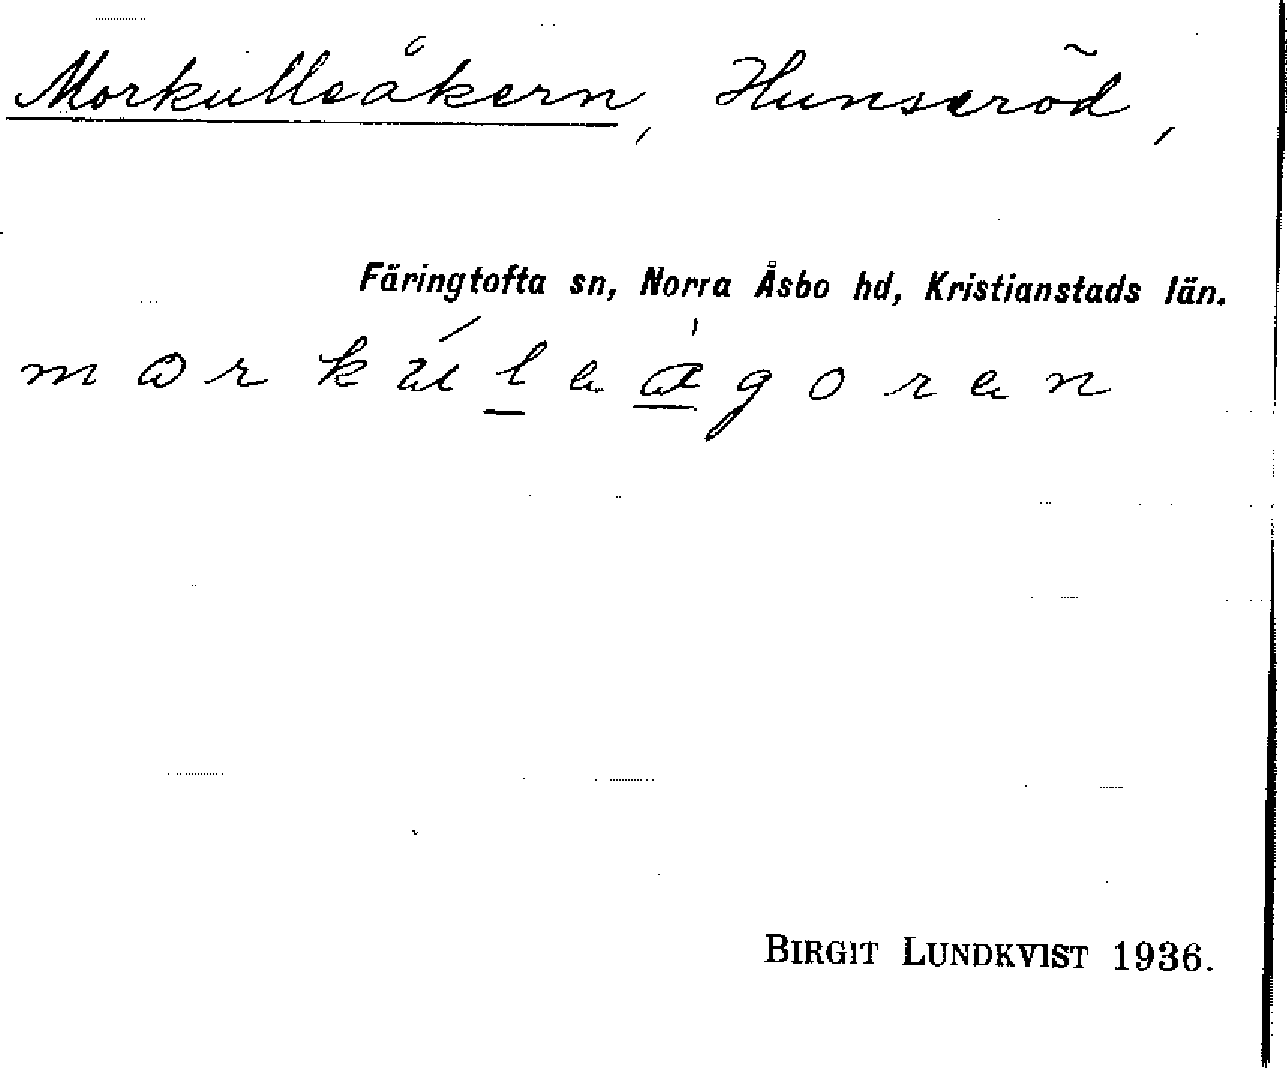 Morkulleåkern, Hunseröd,
Färingtofta sn, Norra Åsbo hd, Kristianstads län.
morkúleagoren
BIRGIT LUNDKVIST 1936.